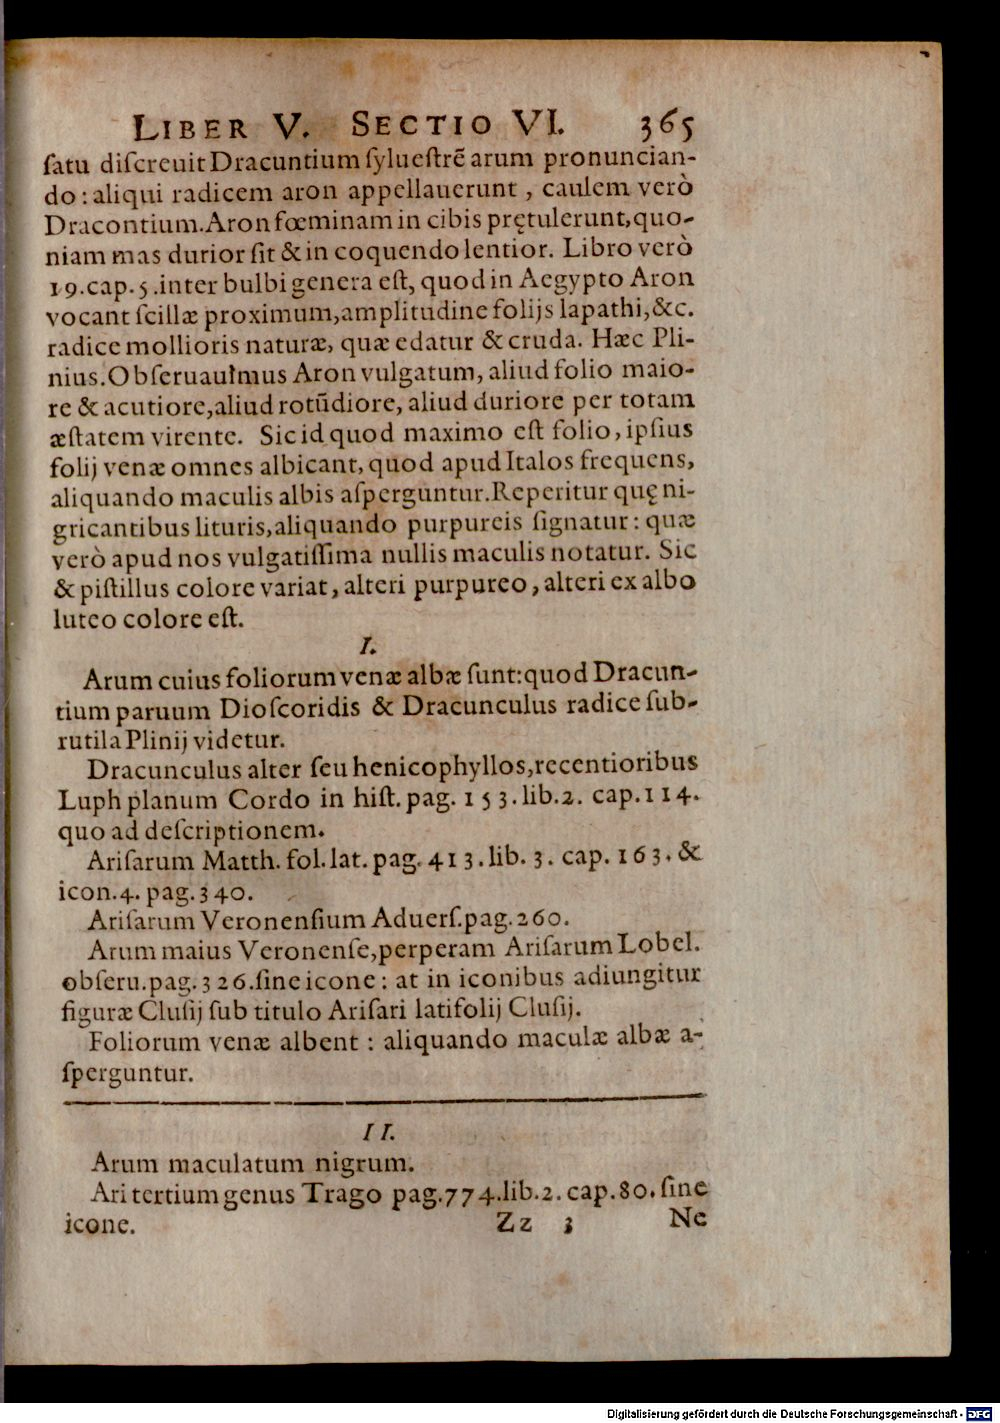 LIBER V. SECTIO VI. 365
ſatu diſcreuit Dracuntium ſylueſtrē arum pronuncian-
do: aliqui radicem aron appellauerunt, caulem verò
Dracontium. Aron fœminam in cibis prętulerunt, quo-
niam mas durior ſit & in coquendo lentior. Libro verò
19. cap. 5. inter bulbi genera eſt, quod in Aegypto Aron
vocant ſcillæ proximum, amplitudine folijs lapathi, &c.
radice mollioris naturæ, quæ edatur & cruda. Hæc Pli-
nius. Obſeruauimus Aron vulgatum, aliud folio maio-
re & acutiore, aliud rotūdiore, aliud duriore per totam
æſtatem virente. Sic id quod maximo eſt folio, ipſius
folij venæ omnes albicant, quod apud Italos frequens,
aliquando maculis albis aſperguntur. Reperitur quę ni-
gricantibus lituris, aliquando purpureis ſignatur: quæ
verò apud nos vulgatiſſima nullis maculis notatur. Sic
& piſtillus colore variat, alteri purpureo, alteri ex albo
luteo colore eſt.
I.
Arum cuius foliorum venæ albæ ſunt: quod Dracun-
tium paruum Dioſcoridis & Dracunculus radice ſub-
rutila Plinij videtur.
Dracunculus alter ſeu henicophyllos, recentioribus
Luph planum Cordo in hiſt. pag. 153. lib. 2. cap. 114.
quo ad deſcriptionem.
Ariſarum Matth. fol. lat. pag. 413. lib. 3. cap. 163. &
icon. 4. pag. 340.
Ariſarum Veronenſium Aduerſ. pag. 260.
Arum maius Veronenſe, perperam Ariſarum Lobel.
obſeru. pag. 326. ſine icone: at in iconibus adiungitur
figuræ Cluſij ſub titulo Ariſari latifolij Cluſij.
Foliorum venæ albent: aliquando maculæ albæ a-
ſperguntur.
II.
Arum maculatum nigrum.
Ari tertium genus Trago pag. 774. lib. 2. cap. 80. ſine
icone. Zz 3 Ne
Digitalisierung gefördert durch die Deutsche Forschungsgemeinschaft - DFG